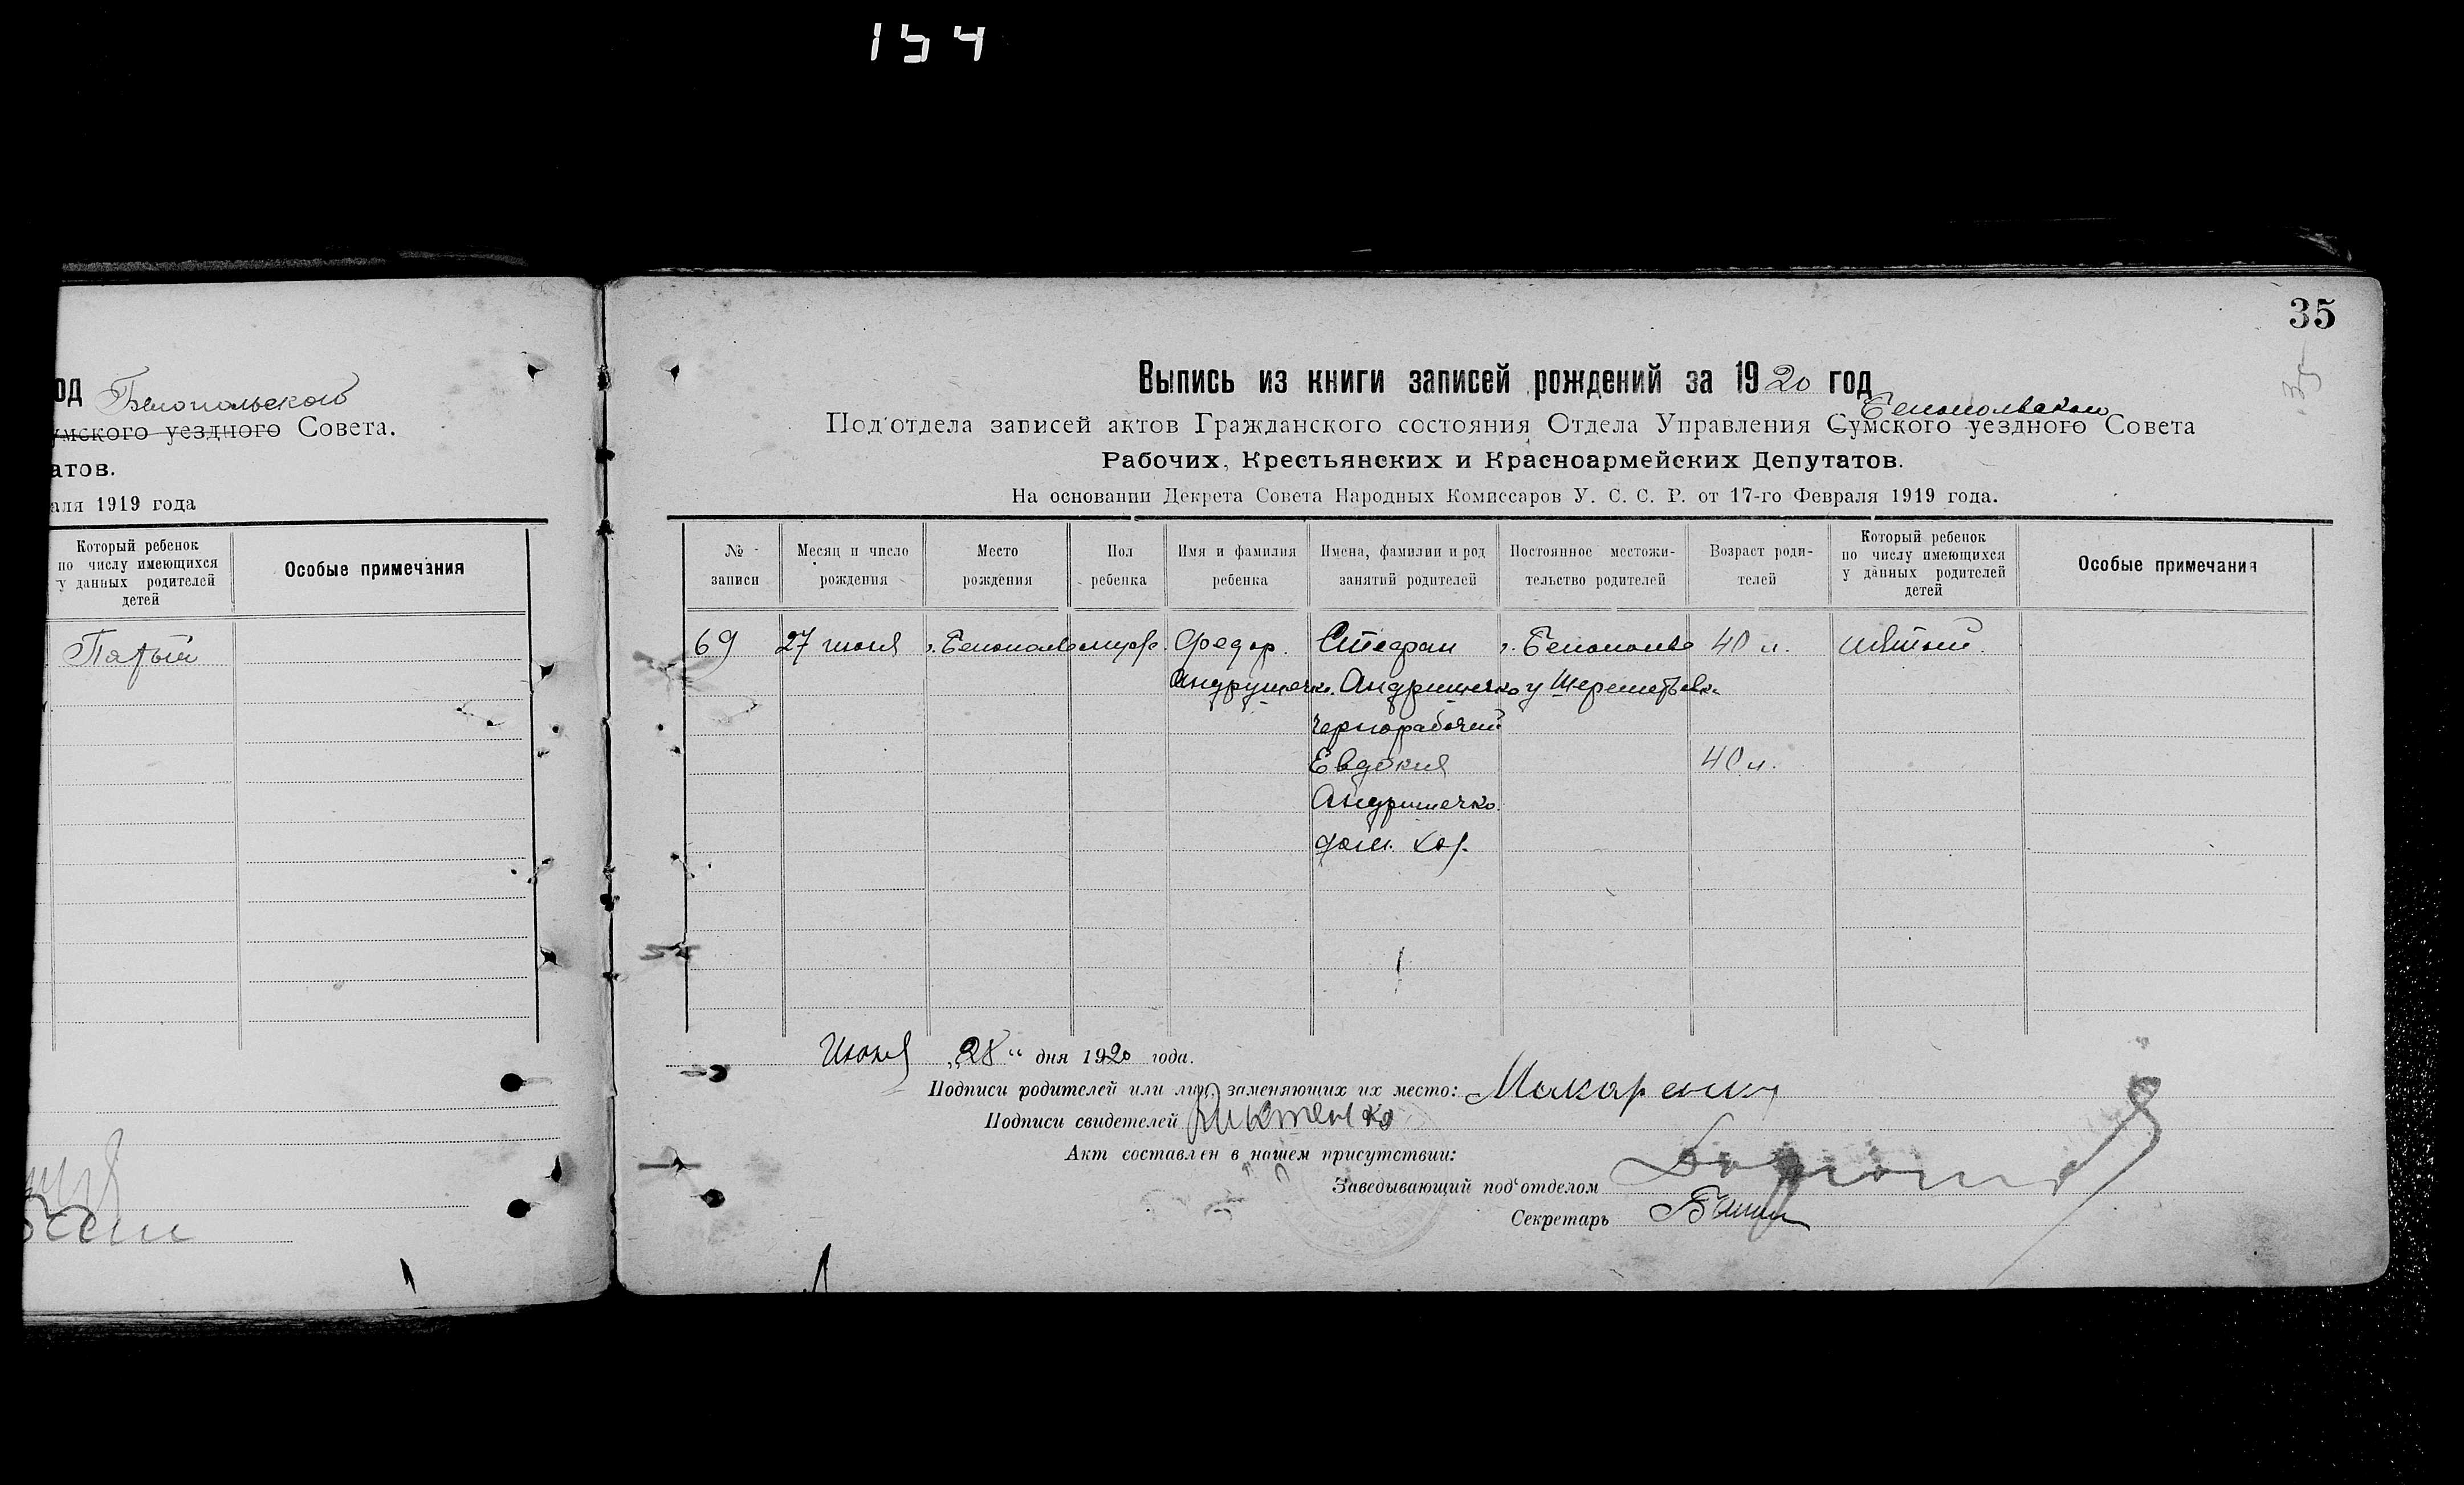 154
од Белопольского
умского уездного Совета.
атов.
аля 1919 года
Который ребенок
по числу имеющихся
у данных родителей
детей
Особые примечания
Пятый
35
35
Выпись из книги записей рождений за 1920 год
Белопольского
Под'отдела записей актов Гражданского состояния Отдела Управления Сумского уездного Совета
Рабочих, Крестьянских и Красноармейских Депутатов.
На основании Декрета Совета Народных Комиссаров У. С. С. Р. от 17-го Февраля 1919 года.
№
записи
Месяц и число
рождения
Место
рождения
Пол
ребенка
Имя и фамилия
ребенка
Имена, фамилии и род
занятий родителей
Постоянное местожи-
тельство родителей
Возраст роди-
телей
Который ребенок
по числу имеющихся
у данных родителей
детей
Особые примечания
69 27 июня г. Белополье муж. Федор. Стефан г. Белополье 40 л.
Андрущечко. Андрищечко у
чернорабочий
Евдокия 40 л.
Андрищечко
дом. хоз.
Июня „28“ дня 1920 года.
Подписи родителей или лиц, заменяющих их место: Макаренко
Подписи свидетелей
Акт составлен в нашем присутствии:
Заведывающий под'отделом
Секретарь